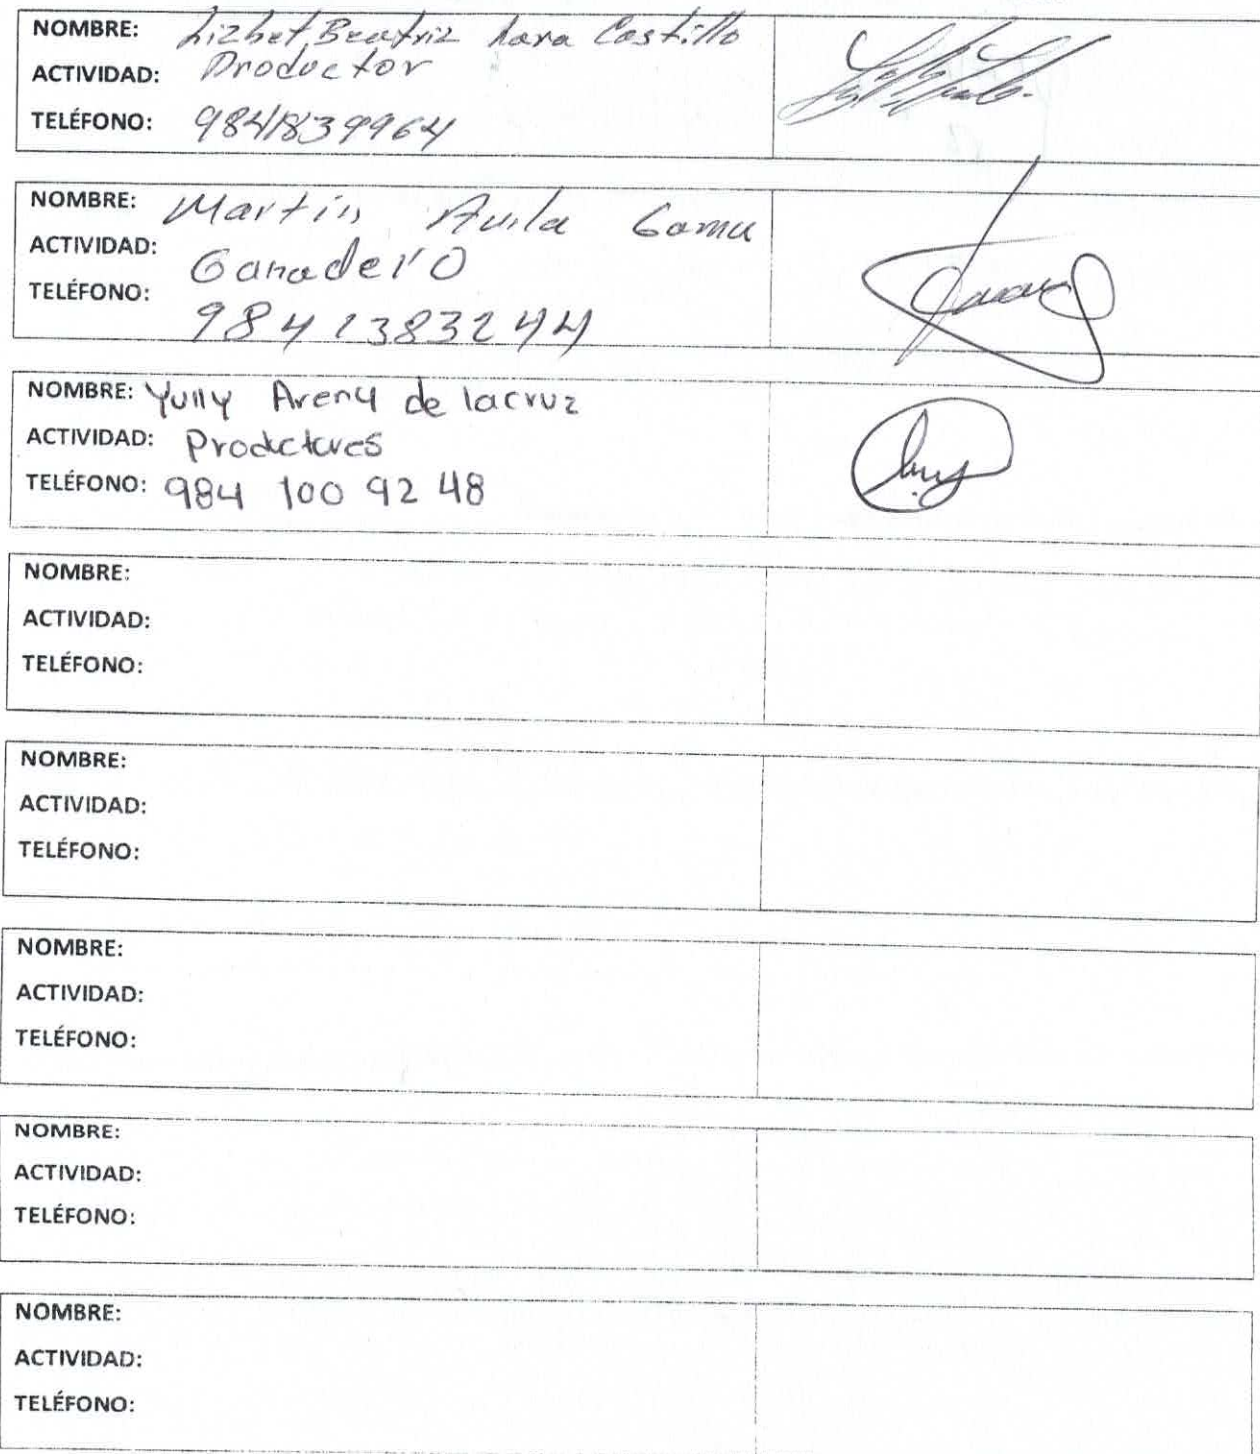 NOMBRE: Lizbet Beatriz Lara Castillo
ACTIVIDAD: Productor
TELÉFONO: 9841839964
NOMBRE: Martin Avila Gama
ACTIVIDAD: Ganadero
TELÉFONO: 9841383244
NOMBRE: Yully Areny de lacruz
ACTIVIDAD: Productores
TELÉFONO: 984 100 92 48
NOMBRE:
ACTIVIDAD:
TELÉFONO:
NOMBRE:
ACTIVIDAD:
TELÉFONO:
NOMBRE:
ACTIVIDAD:
TELÉFONO:
NOMBRE:
ACTIVIDAD:
TELÉFONO:
NOMBRE:
ACTIVIDAD:
TELÉFONO: